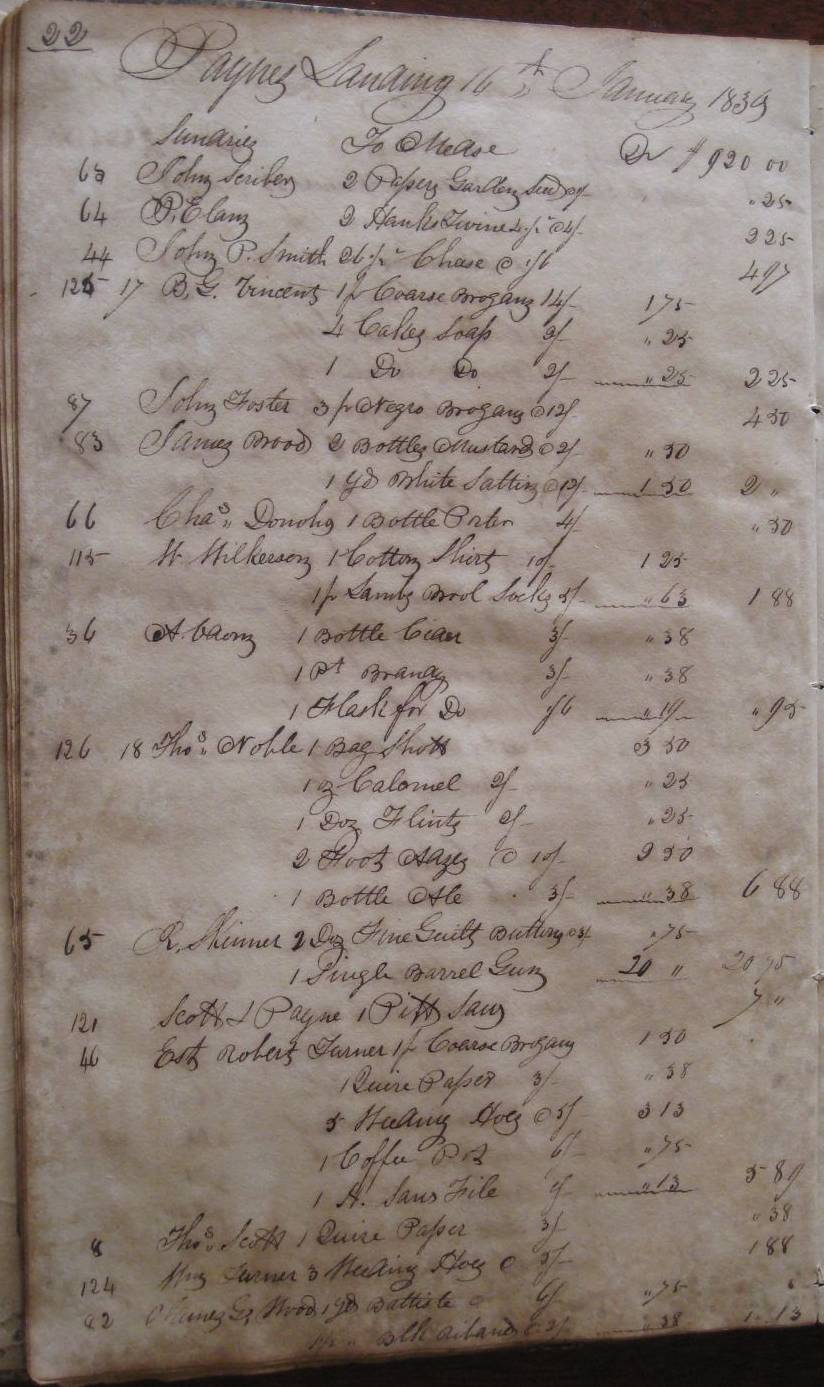 22
Paynes Landing 16th January 1839
Sundries To Mdse Dr $ 920 00
63 John Scriben 2 Papers Garden Seed "25
64 P. Elam 2 Hanks Twine 4/- 2 25
44 John P. Smith 26 Chese @ 1/6 4 97
125 17 B. G. Vincent 1 pr Coarse Brogans 14/- 1 75
4 Cakes Soap 2/- "25
1 Do Do 2/- "25 2 25
87 John Foster 3 pr Negro Brogans @ 12/- 4 50
83 James Brood 2 Bottles Mustard @ 2/- "50
1 yd White Sattin @ 12/- 1 50 2 "
66 Chas. Donoho 1 Bottle Porter 4/- "50
115 W Wilkerson 1 Cotton Shirt 10/- 1 25
1 pr Lambs Wool Socks 5/- "63 1 88
36 A. 1 Bottle Cider 3/- "38
1 Pt Brandy 3/- "38
1 Flask for Do 1/6 "19 "95
126 18 Thos. Noble 1 Bag Shott 3 50
1 oz Calomel 2/- "25
1 Doz Flints 2/- "25
2 Foot Adzes @ 10/- 2 50
1 Bottle Ale 3/- "38 6 88
65 R. Skinner 2 Doz Fine Guilt Buttons @ 3/- "75
1 Single Barrel Gun 20 " 20 75
121 Scott & Payne 1 Pitt Saw 7 "
46 Est Robert Turner 1 pr Coarse Brogans 1 50
1 Quire Paper 3/- "38
5 Weeding Hoes @ 5/- 3 13
1 Coffee Pot 6/- "75
1 H. Saw File 1/- "13 5 89
8 Thos. Scott 1 Quire Paper 3/- "38
124 Wm Turner 3 Weeding Hoes @ 5/- 1 88
82 James G. Wood 1 yd Battiste @ 6/- "75
Blk Riband @ "38 1 13